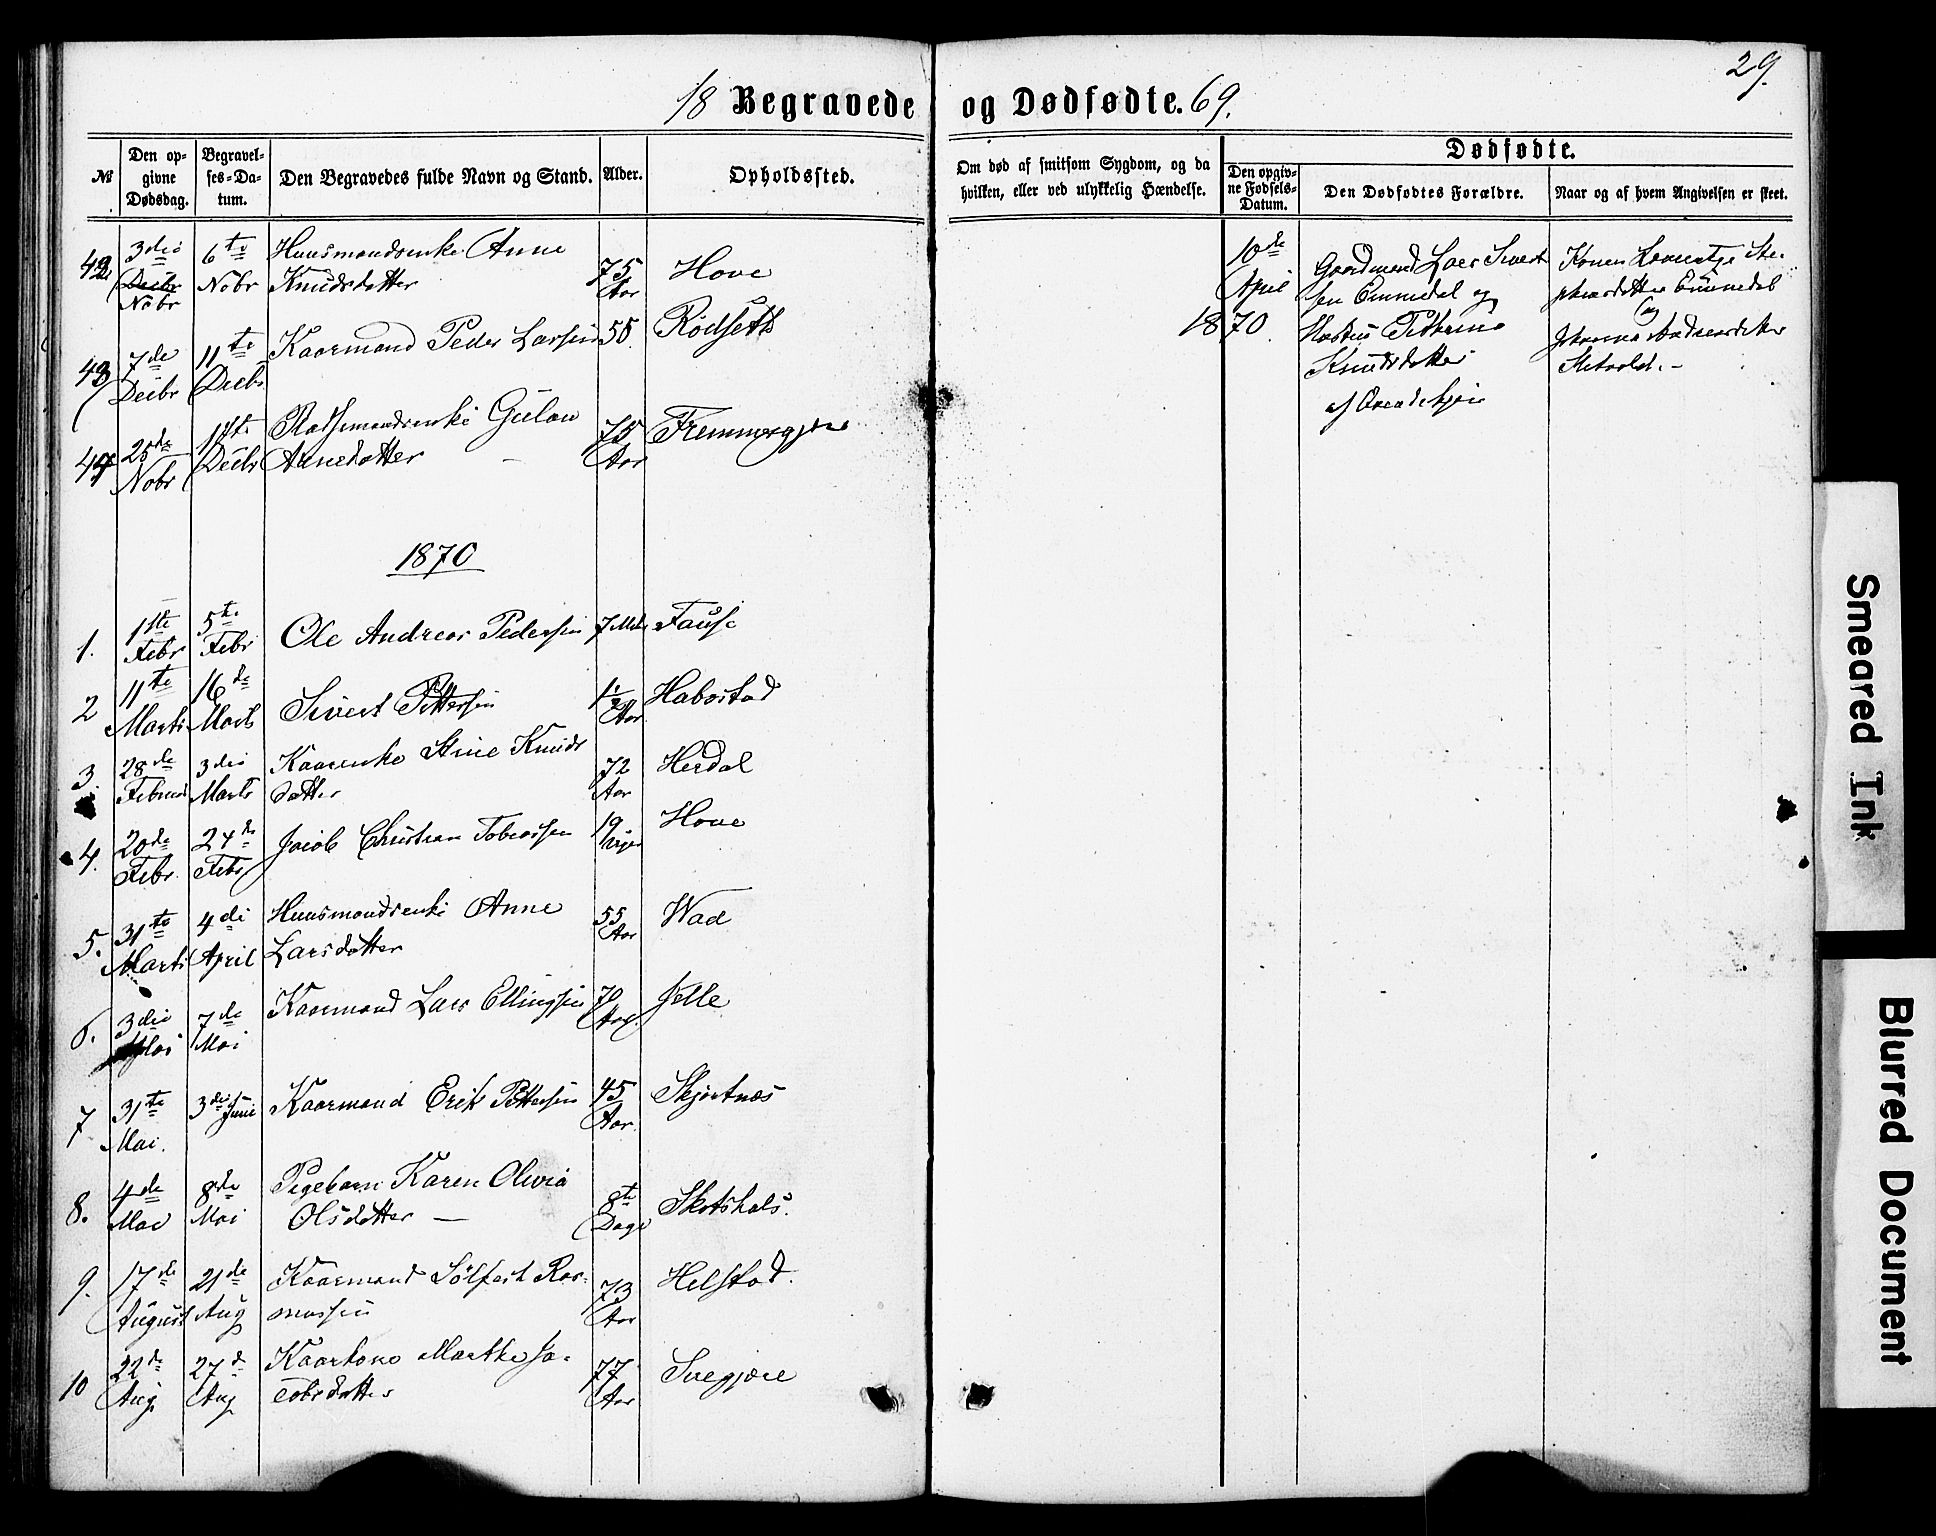 29.
18 Begravede og Dødfødte. 69.
№
Den op-
givne
Dødsdag.
Begravel-
ses-Da-
tum.
Den Begravedes fulde Navn og Stand.
Alder.
Opholdssted.
Om død af smitsom Sygdom, og da
hvilken, eller ved ulykkelig Hændelse.
Dødfødte.
Den opgiv-
ne Fødsels-
Datum.
Den Dødfødtes Forældre.
Naar og af hvem Angivelsen er skeet.
42 3die Decbr Nobr 6te Nobr Huusmandsenke Anne
Knudsdatter 75 Aar Hove
43 7de Decbr 11te Decbr Kaarmand Peder Larsen 55. Rödseth
44 25de Nobr 1ste Decbr
Arnedatter 75 Aar
10de April
1870.
Gaardmand Lars Sivert
sen Emmedal og
Hustru
Knudsdatter
Konen
Emmedal
og
1870
1. 1ste Febr 5te Febr Ole Andreas Pedersen 7 Fause
2 11te Marts 16de Marts Sivert Pettersen 1½ Aar Habostad
3. 28de Februar 3die Marts Kaarenke Stine Knuds
datter 72 Aar Herdal
4. 20de Febr. 24de Febr Jacob Christian Tobiassen 19 Uger Hove
5. 31te Marts 4de April Huusmandsenke Anne
Larsdatter 55 Aar Wad
6. 3die Mai 7de Mai Kaarmand Lars Ellingsen 70 Aar. Jelle
7 31te Mai. 3die Juni Kaarmand Erik Pettersen 45 Aar. Skjortnæs
8. 4de Mai 8de Mai Pigebarn Karen Olivia
Olsdatter — 8te Dage Skotshals.
9. 17de August 21de Aug Kaarmand Sölfest Ras-
mussen 73 Aar Helstad.
10 22de Aug 27de Aug Kaarkone Marthe Ja-
cobsdatter 77 Aar Svegjære
Smeared Ink
Blurred Document